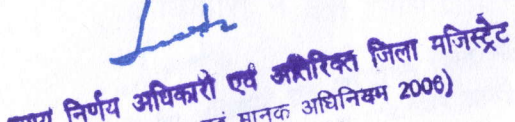 निर्णय अधिकारी एवं अतिरिक्त जिला मजिस्ट्रेट
एवं मानक अधिनियम 2006)